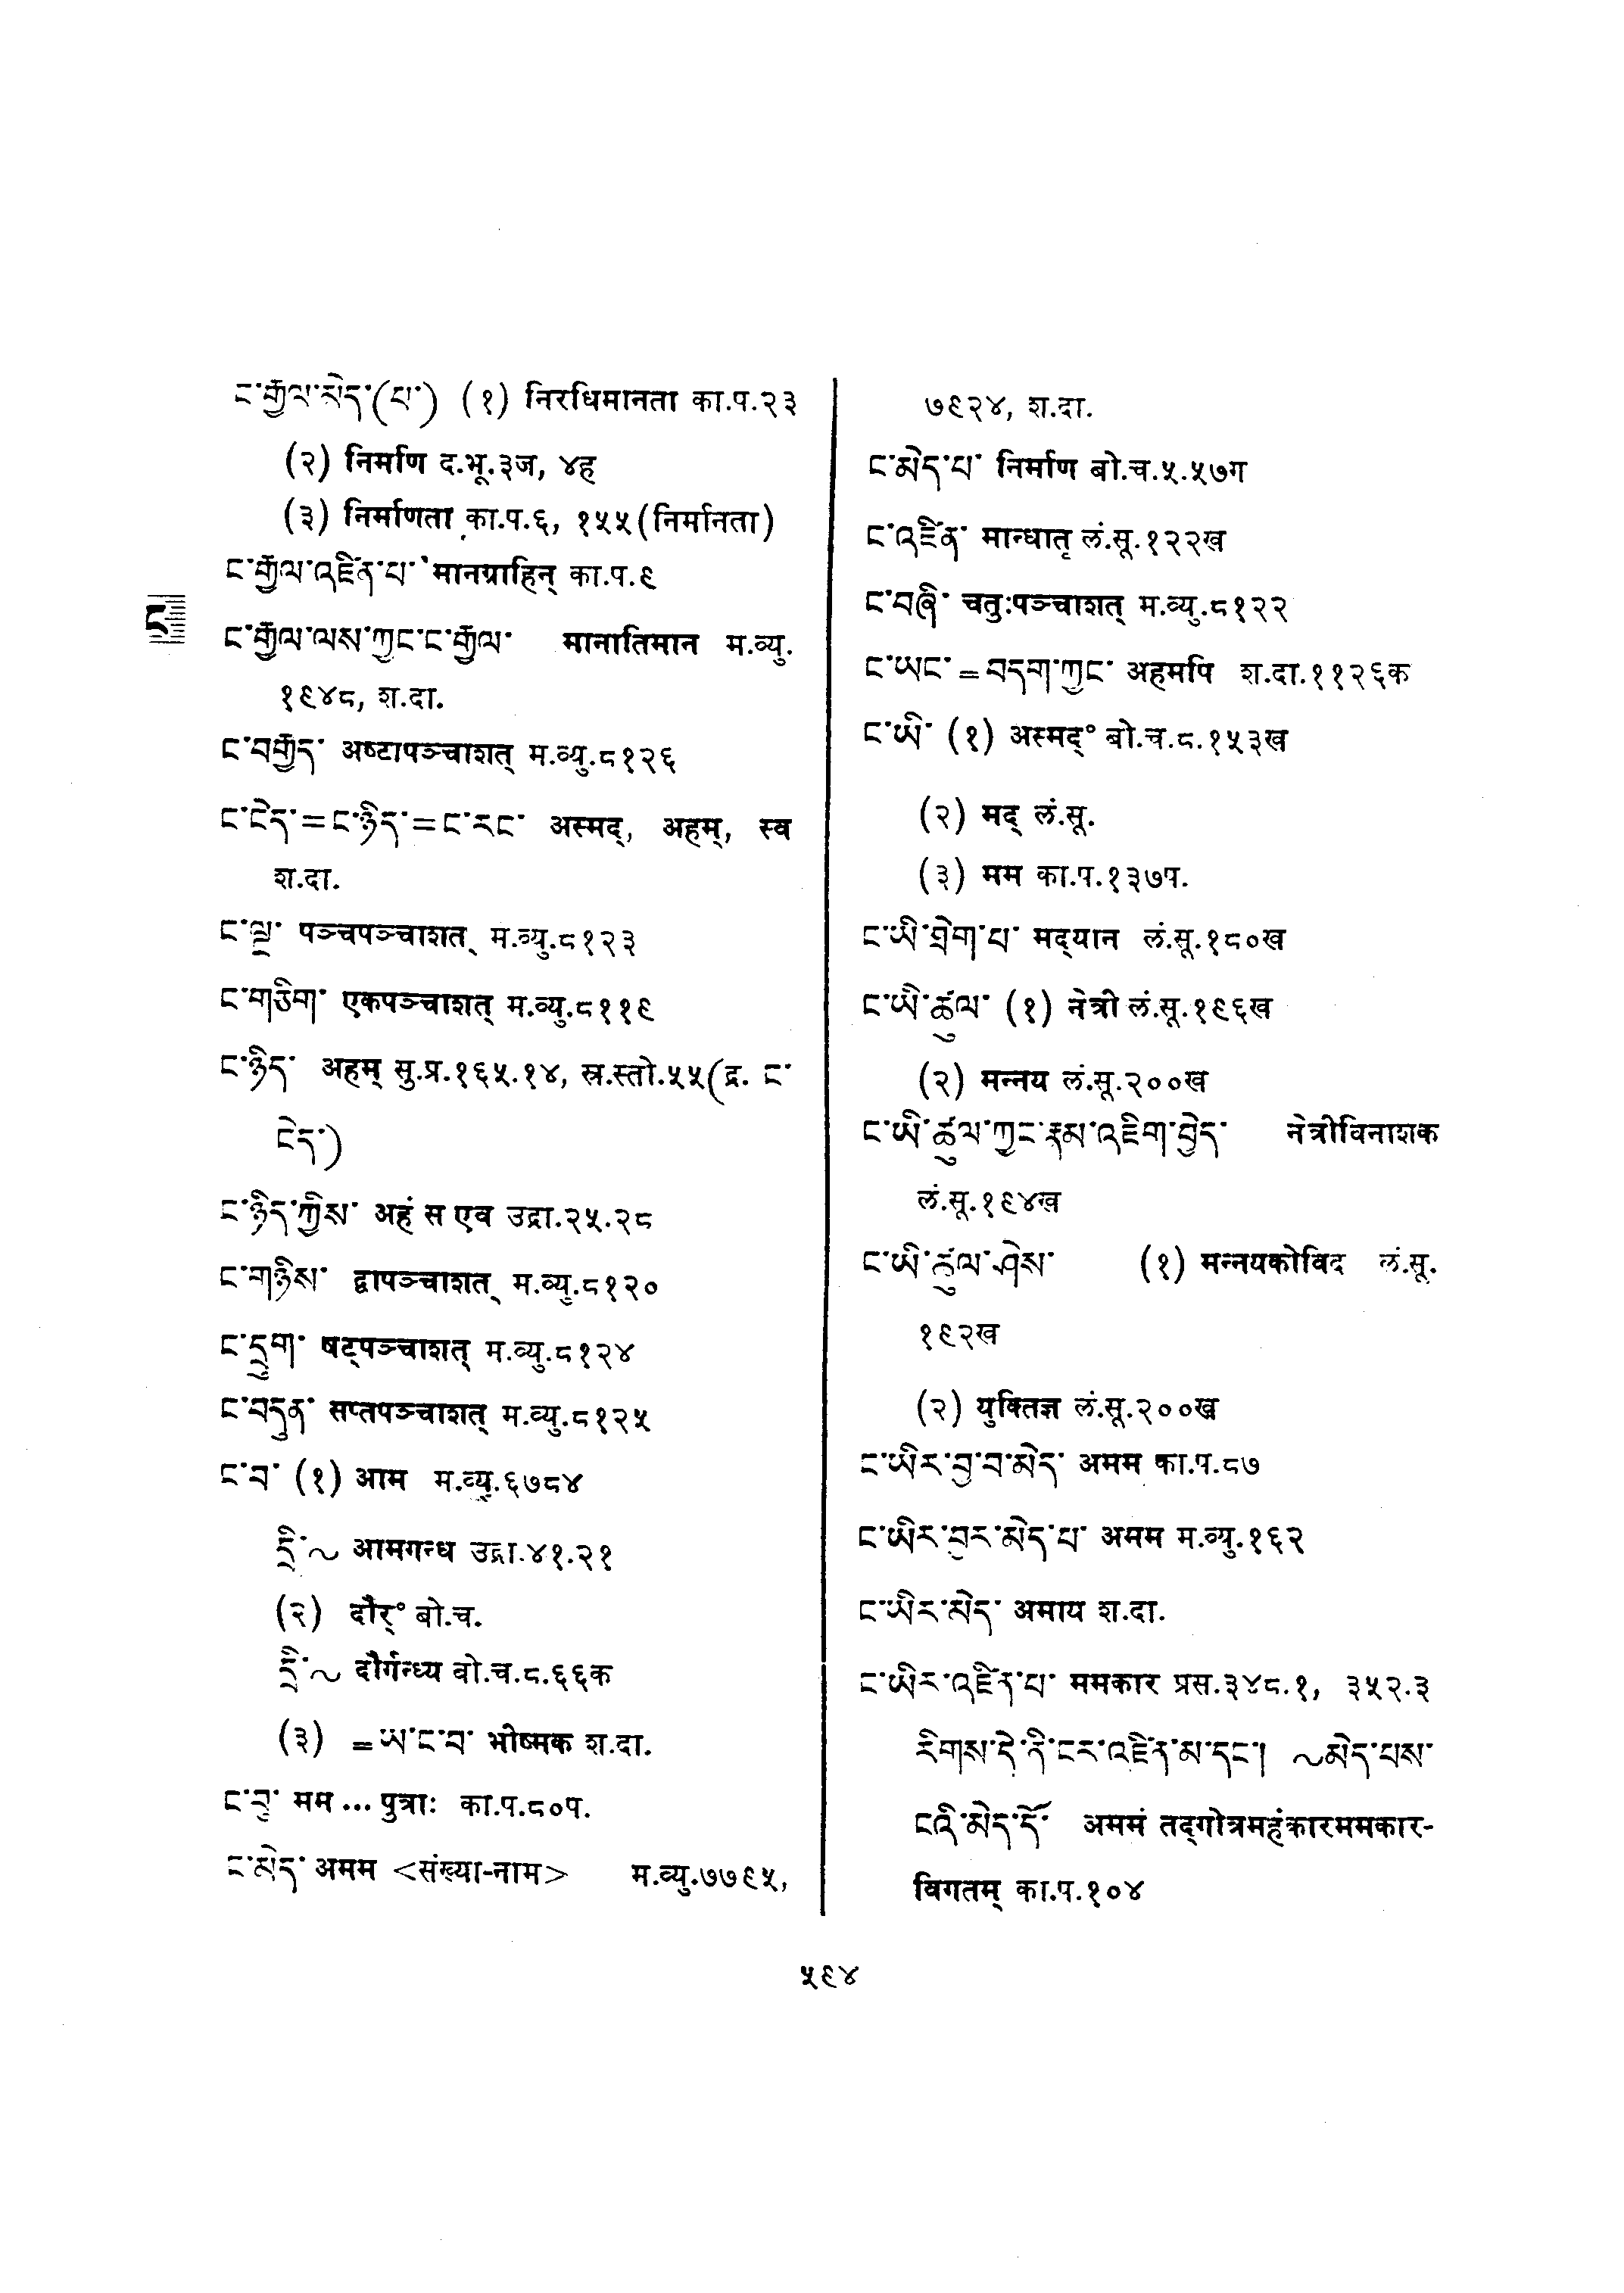 ང་རྒྱལ་མེད་(པ་) (१) निरधिमानता का.प.२३
(२) निर्माण द.भू.३ज, ४ह
(३) निर्माणता का.प.६, १५५(निर्मानता)
ང་རྒྱལ་འཛིན་པ་ मानग्राहिन् का.प.९
ང
ང་རྒྱལ་ལས་ཀྱང་ང་རྒྱལ་ मानातिमान म.व्यु.
१९४८, श.दा.
ང་བརྒྱད་ अष्टापञ्चाशत् म.व्यु.८१२६
ང་ངེད་=ང་ཉིད་=ང་རང་ अस्मद्, अहम्, स्व
श.दा.
ང་ལྔ་ पञ्चपञ्चाशत् म.व्यु.८१२३
ང་གཅིག་ एकपञ्चाशत् म.व्यु.८११९
ང་ཉིད་ अहम् सु.प्र.१६५.१४, स्र.स्तो.५५(द्र. ང་
ངེད་)
ང་ཉིད་ཀྱིས་ अहं स एव उद्रा.२५.२८
ང་གཉིས་ द्वापञ्चाशत् म.व्यु.८१२०
ང་དྲུག་ षट्पञ्चाशत् म.व्यु.८१२४
ང་བདུན་ सप्तपञ्चाशत् म.व्यु.८१२५
ང་བ་ (१) आम म.व्यु.६७८४
དྲི་~ आमगन्ध उद्रा.४१.२१
(२) दौर्° बो.च.
དྲི་~ दौर्गन्ध्य बो.च.८.६६क
(३) =ཡ་ང་བ་ भीष्मक श.दा.
ང་བུ་ मम ... पुत्राः का.प.८०प.
ང་མེད་ अमम <संख्या-नाम> म.व्यु.७७९५,
७९२४, श.दा.
ང་མེད་པ་ निर्माण बो.च.५.५७ग
ང་འཛིན་ मान्धातृ लं.सू.१२२ख
ང་བཞི་ चतुःपञ्चाशत् म.व्यु.८१२२
ང་ཡང་=བདག་ཀྱང་ अहमपि श.दा.११२६क
ང་ཡི་ (१) अस्मद्° बो.च.८.१५३ख
(२) मद् लं.सू.
(३) मम का.प.१३७प.
ང་ཡི་ཐེག་པ་ मद्यान लं.सू.१८०ख
ང་ཡི་ཚུལ་ (१) नेत्री लं.सू.१९६ख
(२) मन्नय लं.सू.२००ख
ང་ཡི་ཚུལ་ཀྱང་རྣམ་འཇིག་བྱེད་ नेत्रीविनाशक
लं.सू.१९४ख
ང་ཡི་ཚུལ་ཤེས་ (१) मन्नयकोविद लं.सू.
१९२ख
(२) युक्तिज्ञ लं.सू.२००ख
ང་ཡིར་བྱ་བ་མེད་ अमम का.प.८७
ང་ཡིར་བྱར་མེད་པ་ अमम म.व्यु.१६२
ང་ཡིར་མེད་ अमाय श.दा.
ང་ཡིར་འཛིན་པ་ ममकार प्रस.३४८.१, ३५२.३
རིགས་དེ་ནི་ངར་འཛིན་མ་དང་། ~མེད་པས་
ངའི་མེད་དོ་ अममं तद्गोत्रमहंकारममकार-
विगतम् का.प.१०४
५९४